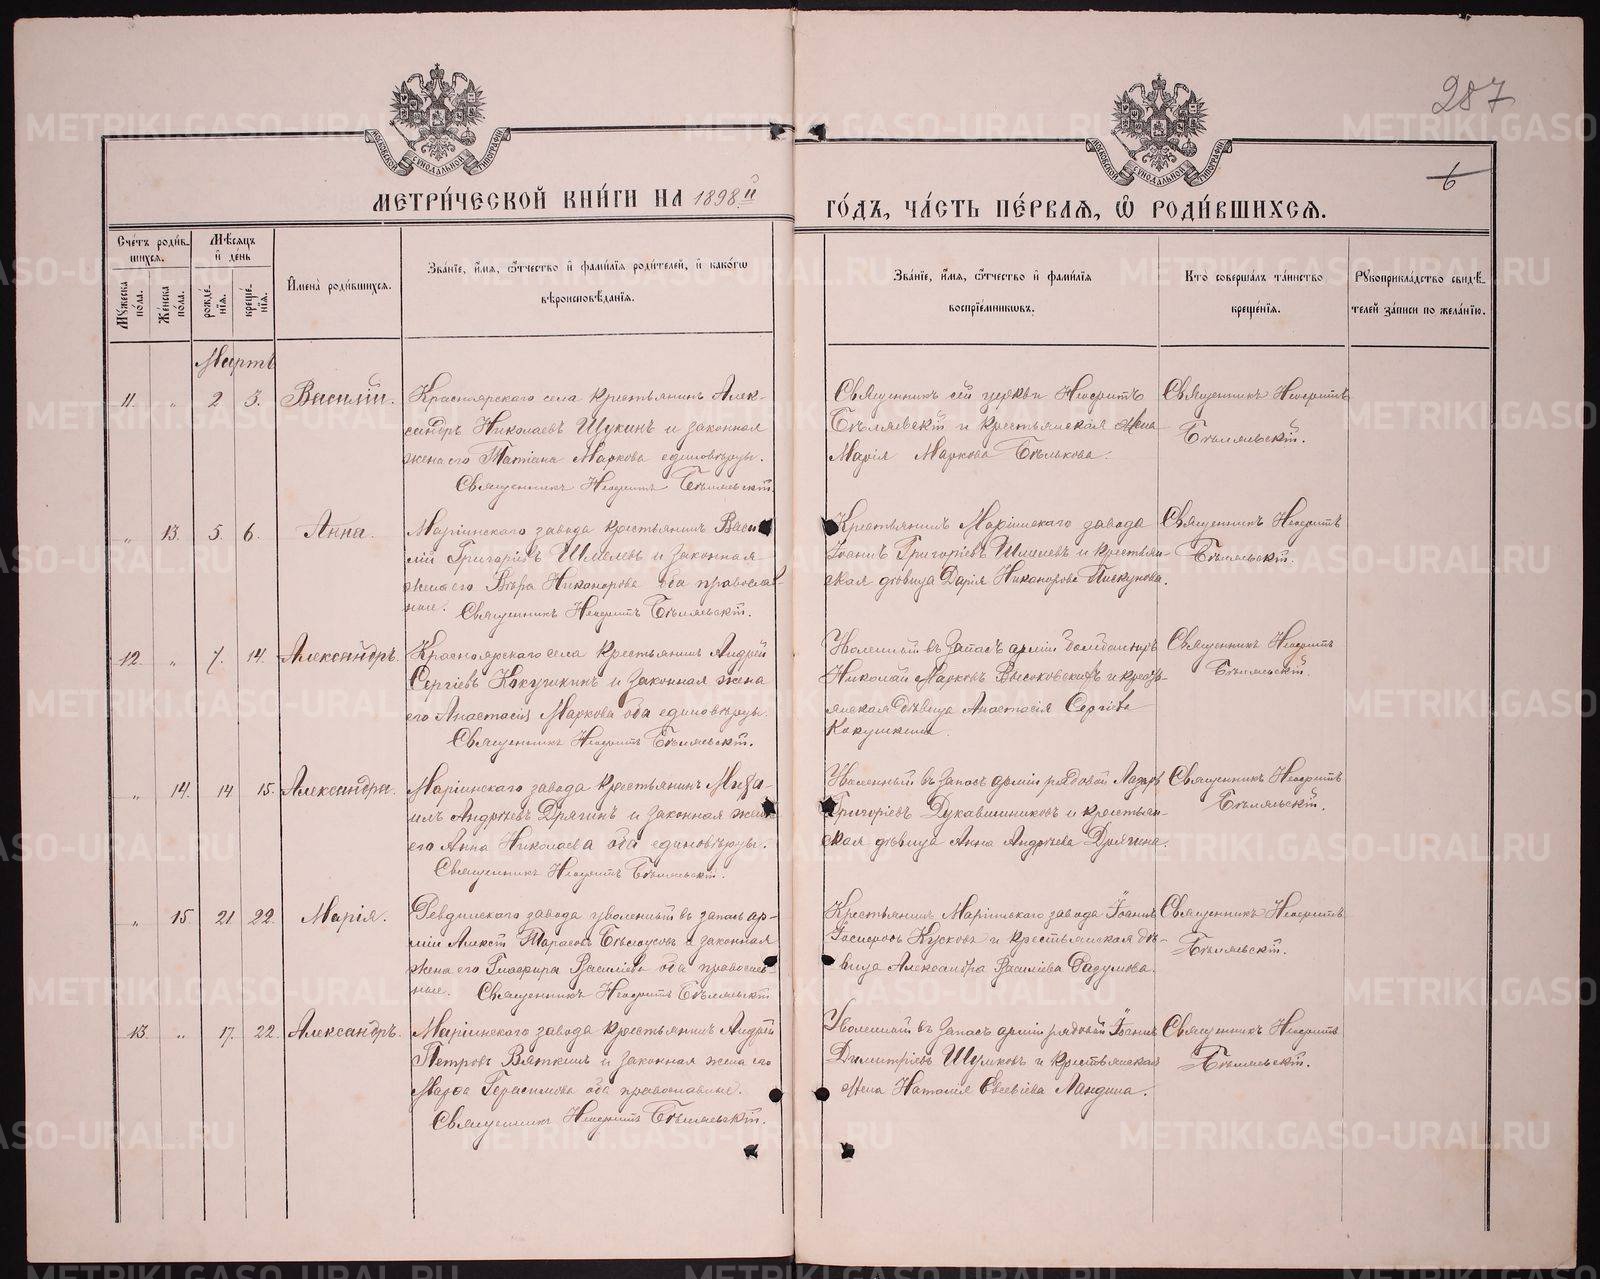 287
6
МОСКОВСКОЙ СѴНОДАЛЬНОЙ ТИПОГРАФІИ
МОСКОВСКОЙ СѴНОДАЛЬНОЙ ТИПОГРАФІИ
МЕТРИ́ЧЕСКОЙ КНИ́ГИ НА 1898й
ГО́ДЪ, ЧА́СТЬ ПЕ́РВАѦ, Ѽ РОДИ́ВШИХСѦ.
Сче́тъ роди́в-
шихся.
Мѣсяцъ
и де́нь
Мꙋжеска по́ла.
Же́нска по́ла.
рожде́нія.
креще́нія.
Имена̀ роди́вшихся.
Зва́нїе, и́мя, ѻтчество и фами́лїя роди́телей, и како́гѡ
вѣроисповѣ́данїя.
Зва́нїе, и́мя, ѻтчество и фами́лїя
воспрїе́мникωвъ.
Кто̀ соверша́лъ та́инство
креще́нїя.
Рꙋкоприкла́дство свидѣ́-
телей за́писи по жела́нїю.
Мартъ
11. " 2 3. Василій. Красноярскаго села крестьянинъ Алек-
сандръ Николаевъ Щукинъ и законная
жена его Татіана Маркова единовѣрцы.
Священникъ Неофитъ Бѣляевскій.
Священникъ сей церкви Неофитъ
Бѣляевскій и крестьянская жена
Марія Маркова Бѣлькова.
Священникъ Неофитъ
Бѣляевскій.
" 13. 5. 6. Анна. Маріинскаго завода крестьянинъ Васи-
лій Григоріевъ Шмелевъ и законная
жена его Вѣра Никанорова оба православ-
ные. Священникъ Неофитъ Бѣляевскій.
Крестьянинъ Маріинскаго завода
Іоаннъ Григоріевъ Шмелевъ и крестьян-
ская дѣвица Дарія Никанорова Пискунова.
Священникъ Неофитъ
Бѣляевскій.
12. " 7. 14. Александръ. Красноярскаго села крестьянинъ Андрей
Сергіевъ Кокушкинъ и законная жена
его Анастасія Маркова оба единовѣрцы.
Священникъ Неофитъ Бѣляевскій.
Уволенный въ запасъ арміи бомбардиръ
Николай Марковъ Высоковскихъ и кресть-
янская дѣвица Анастасія Сергіева
Кокушкина.
Священникъ Неофитъ
Бѣляевскій.
" 14. 14 15. Александра. Маріинскаго завода крестьянинъ Миха-
илъ Андреевъ Дрягинъ и законная жена
его Анна Николаева оба единовѣрцы.
Священникъ Неофитъ Бѣляевскій.
Уволенный въ запасъ арміи рядовой Лазарь
Григоріевъ Дукавишниковъ и крестьян-
ская дѣвица Анна Андреева Дрягина.
Священникъ Неофитъ
Бѣляевскій.
" 15. 21 22. Марія. Ревдинскаго завода уволенный въ запасъ ар-
міи Алексій Тарасовъ Бѣлоусовъ и законная
жена его Глафира Василіева оба православ-
ные. Священникъ Неофитъ Бѣляевскій
Крестьянинъ Маріинскаго завода Іоаннъ
Кусковъ и крестьянская дѣ-
вица Александра Василіева
Священникъ Неофитъ
Бѣляевскій.
13. " 17. 22. Александръ. Маріинскаго завода крестьянинъ Андрей
Петровъ Вяткинъ и законная жена его
Марѳа Герасимова оба православные.
Священникъ Неофитъ Бѣляевскій.
Уволенный въ запасъ арміи рядовой Іоаннъ
Димитріевъ Шумковъ и крестьянская
жена Наталія Евсевіева Ландина.
Священникъ Неофитъ
Бѣляевскій.
METRIKI.GASO-URAL.RU